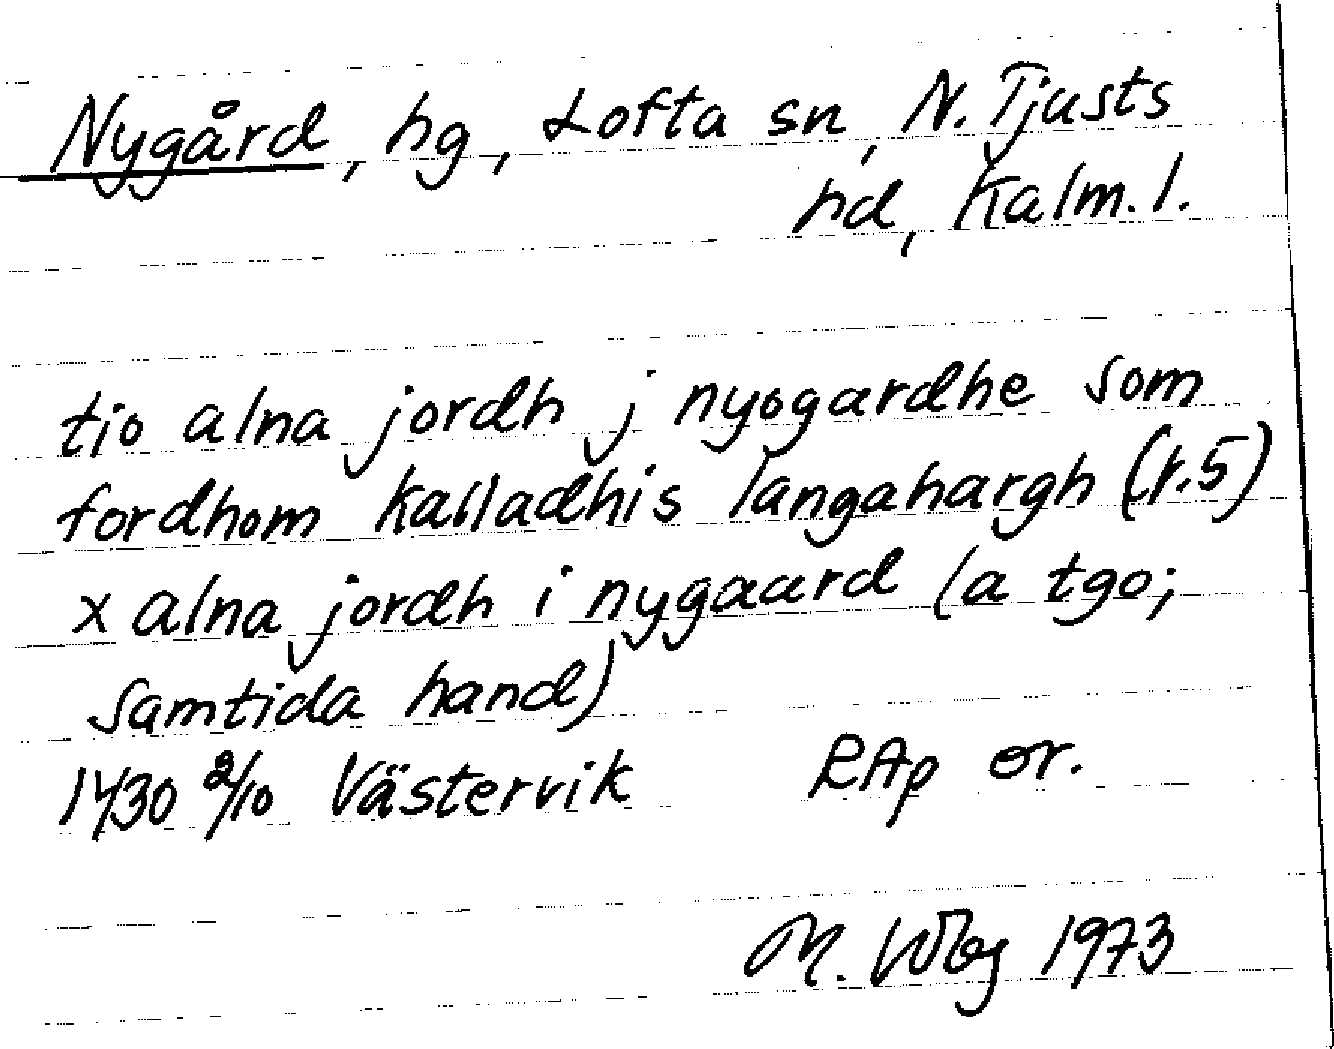 Nygård, hg, Lofta sn, N. Tjusts
hd, Kalm. l.
tio alna jordh j nyogardhe som
fordhom kalladhis langahargh (r.5)
x alna jordh i nygaard (a tgo;
samtida hand)
1430 2/10 Västervik RAp or.
M. 1973